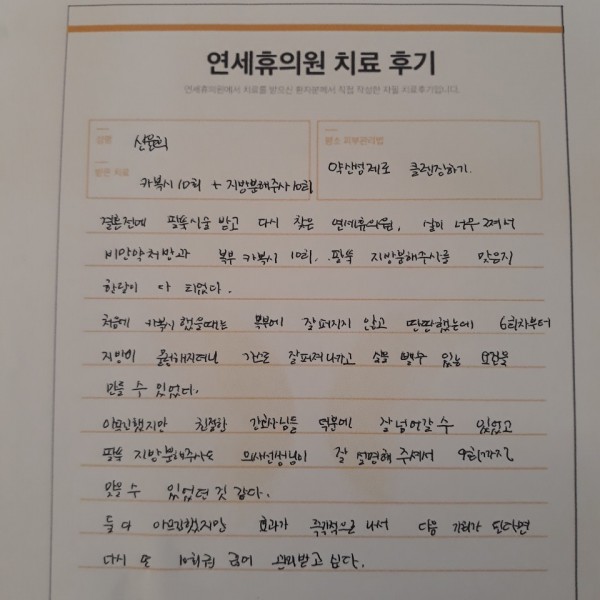 연세휴의원 치료 후기
연세휴의원에서 치료를 받으신 환자분께서 직접 작성한 자필 치료후기입니다.
성함
선윤희
받은 치료
카복시 10회 + 지방분해주사 10회
평소 피부관리법
약산성 제로 클렌징하기.
결혼전에 팔뚝시술 받고 다시 찾은 연세휴의원, 살이 너무 쪄서
비만약처방과 복부 카복시 10회, 팔뚝 지방분해주사를 맞은지
한달이 다 되었다.
처음에 카복시 했을때는 복부에 잘 퍼지지 않고 딴딴했는데 6회차부터
지방이 물렁해지더니 가스도 잘 퍼져나가고 살을 뺄수 있는 요건을
만들 수 있었다.
아프긴했지만 친절한 간호사님들 덕분에 잘 넘어갈 수 있었고
팔뚝 지방분해주사도 의사선생님이 잘 설명해 주셔서 9회까지
맞을 수 있었던 것 같다.
둘 다 아프긴했지만 효과가 즉각적으로 나서 다음 기회가 된다면
다시 또 10회권 끊어 관리받고 싶다.